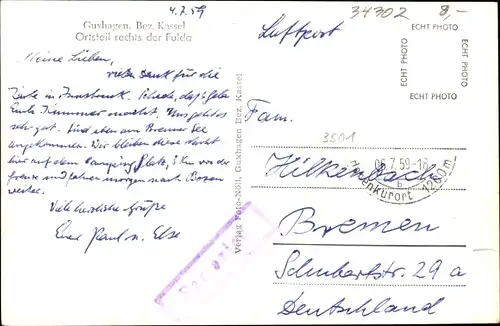 4.7.59
34302 8,-
Guxhagen, Bez. Kassel
Ortsteil rechts der Fulda
Luftpost
ECHT PHOTO
ECHT PHOTO
ECHT PHOTO
ECHT PHOTO
Meine Lieben,
vielen Dank für die
Karte in Innsbruck. Schade, daß
Kummer macht. Uns geht es
sehr gut. Sind eben am Brenner See
angekommen. Wir bleiben diese Nacht
hier auf dem Campingplatz, 3 km von der
Grenze und fahren morgen nach Bozen
weiter.
Viele herzliche Grüße
Eure Paul u. Else
Verlag Foto-Nöll, Guxhagen Bez. Kassel
Fam.
3591
06.7.59-18
b
1260m
Hilkenbach
Bremen
Schubertstr. 29 a
Deutschland